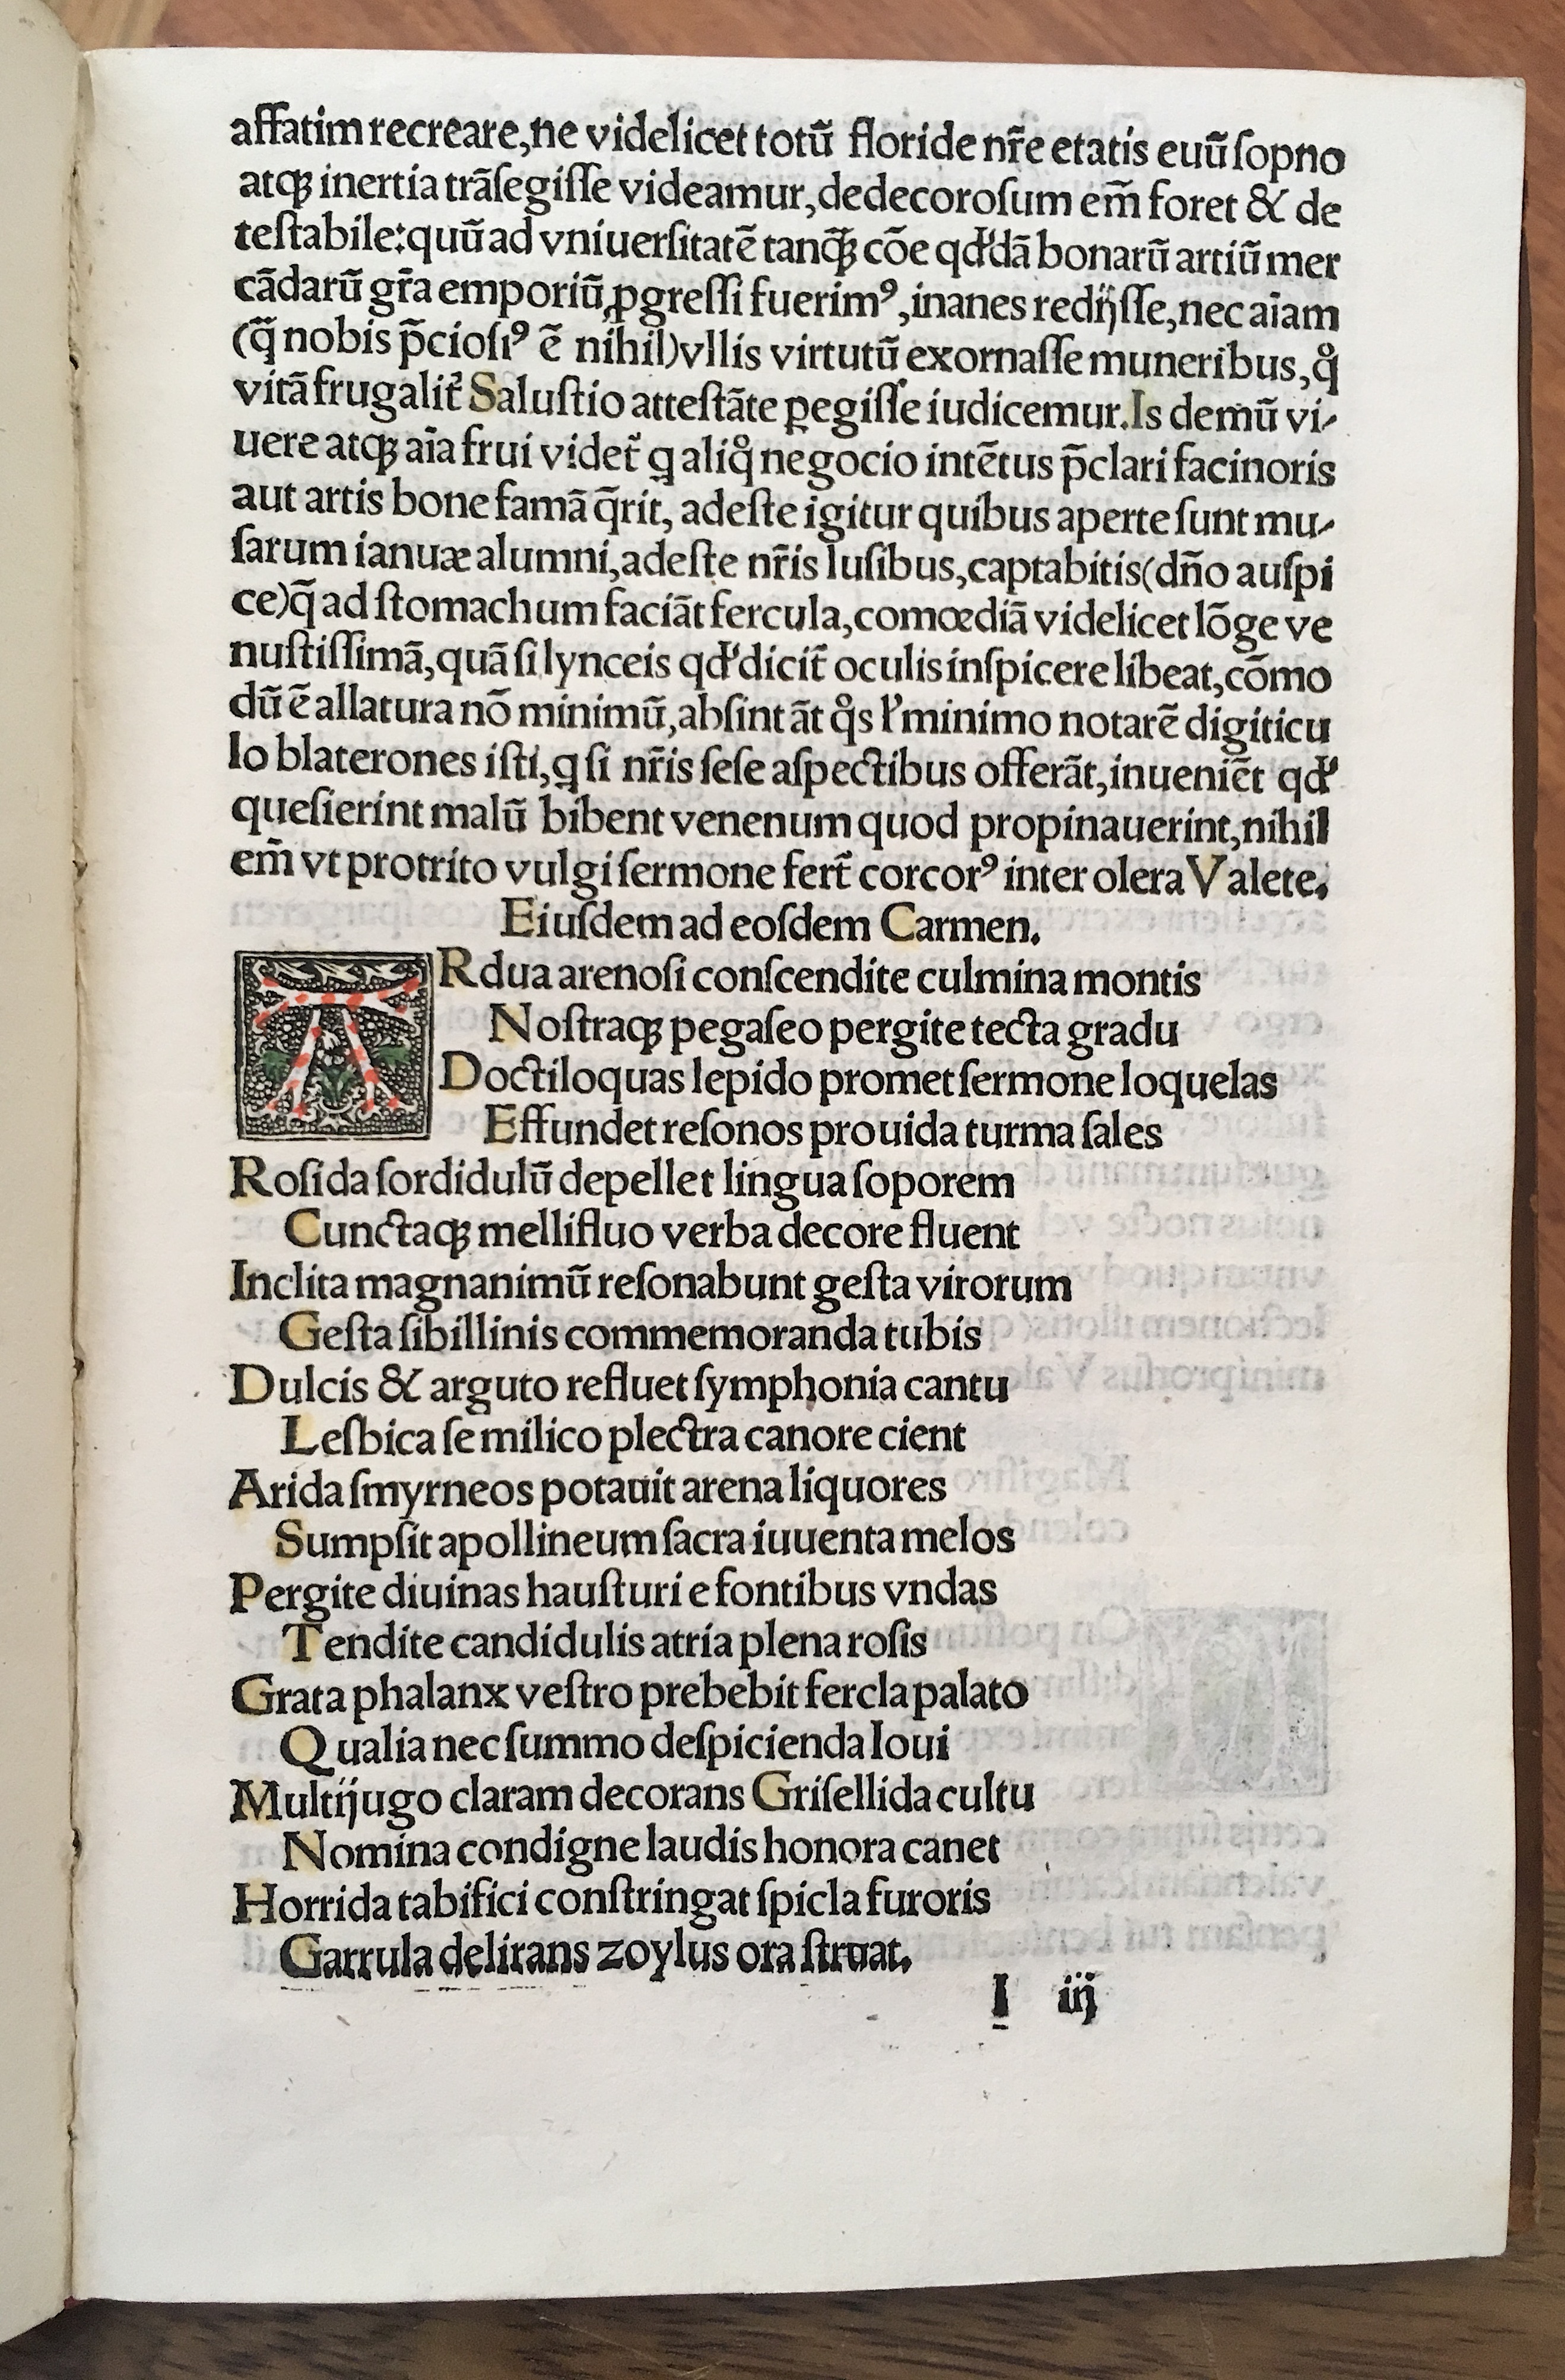 affatim recreare,ne videlicet totū floride nr̄e etatis euū ſopno
atqꝫ inertia trāſegiſſe videamur,dedecoroſum em̄ foret & de
teſtabile:quū ad vniuerſitatē tanqꝫ̄ cōe qd'dā bonarū artiū mer
cādarū gr̄a emporiū ꝓgreſſi fuerimꝰ,inanes redijſſe,nec aīam
(q̄ nobis p̄cioſiꝰ ē nihil)vllis virtutū exornaſſe muneribus,qͦ
vitā frugalit̄ Saluſtio atteſtāte ꝑegiſſe iudicemur.Is demū vi⸗
uere atqꝫ aīa frui videt̄ ꝗ aliqͦ negocio intētus p̄clari facinoris
aut artis bone famā q̄rit, adeſte igitur quibus aperte ſunt mu⸗
ſarum ianuæ alumni,adeſte nr̄is luſibus,captabitis(dn̄o auſpi
ce)q̄ ad ſtomachum faciāt fercula,comœdiā videlicet lōge ve
nuſtiſſimā,quā ſi lynceis qd' dicit̄ oculis inſpicere libeat,cōmo
dū ē allatura nō minimū,abſint āt qͦs l' minimo notarē digiticu
lo blaterones iſti,ꝗ ſi nr̄is ſeſe aſpectibus offerāt,inueniēt qd'
queſierint malū bibent venenum quod propinauerint,nihil
em̄ vt protrito vulgi ſermone fert̄ corcorꝰ inter olera Valete.
Eiuſdem ad eoſdem Carmen.
ARdua arenoſi conſcendite culmina montis
Noſtraqꝫ pegaſeo pergite tecta gradu
Doctiloquas lepido promet ſermone loquelas
Effundet reſonos prouida turma ſales
Roſida ſordidulū depellet lingua ſoporem
Cunctaqꝫ mellifluo verba decore fluent
Inclita magnanimū reſonabunt geſta virorum
Geſta ſibillinis commemoranda tubis
Dulcis & arguto refluet ſymphonia cantu
Leſbica ſe milico plectra canore cient
Arida ſmyrneos potauit arena liquores
Sumpſit apollineum ſacra iuuenta melos
Pergite diuinas hauſturi e fontibus vndas
Tendite candidulis atria plena roſis
Grata phalanx veſtro prebebit fercla palato
Qualia nec ſummo deſpicienda Ioui
Multijugo claram decorans Griſellida cultu
Nomina condigne laudis honora canet
Horrida tabifici conſtringat ſpicla furoris
Garrula delirans zoylus ora ſtruat.
I iij